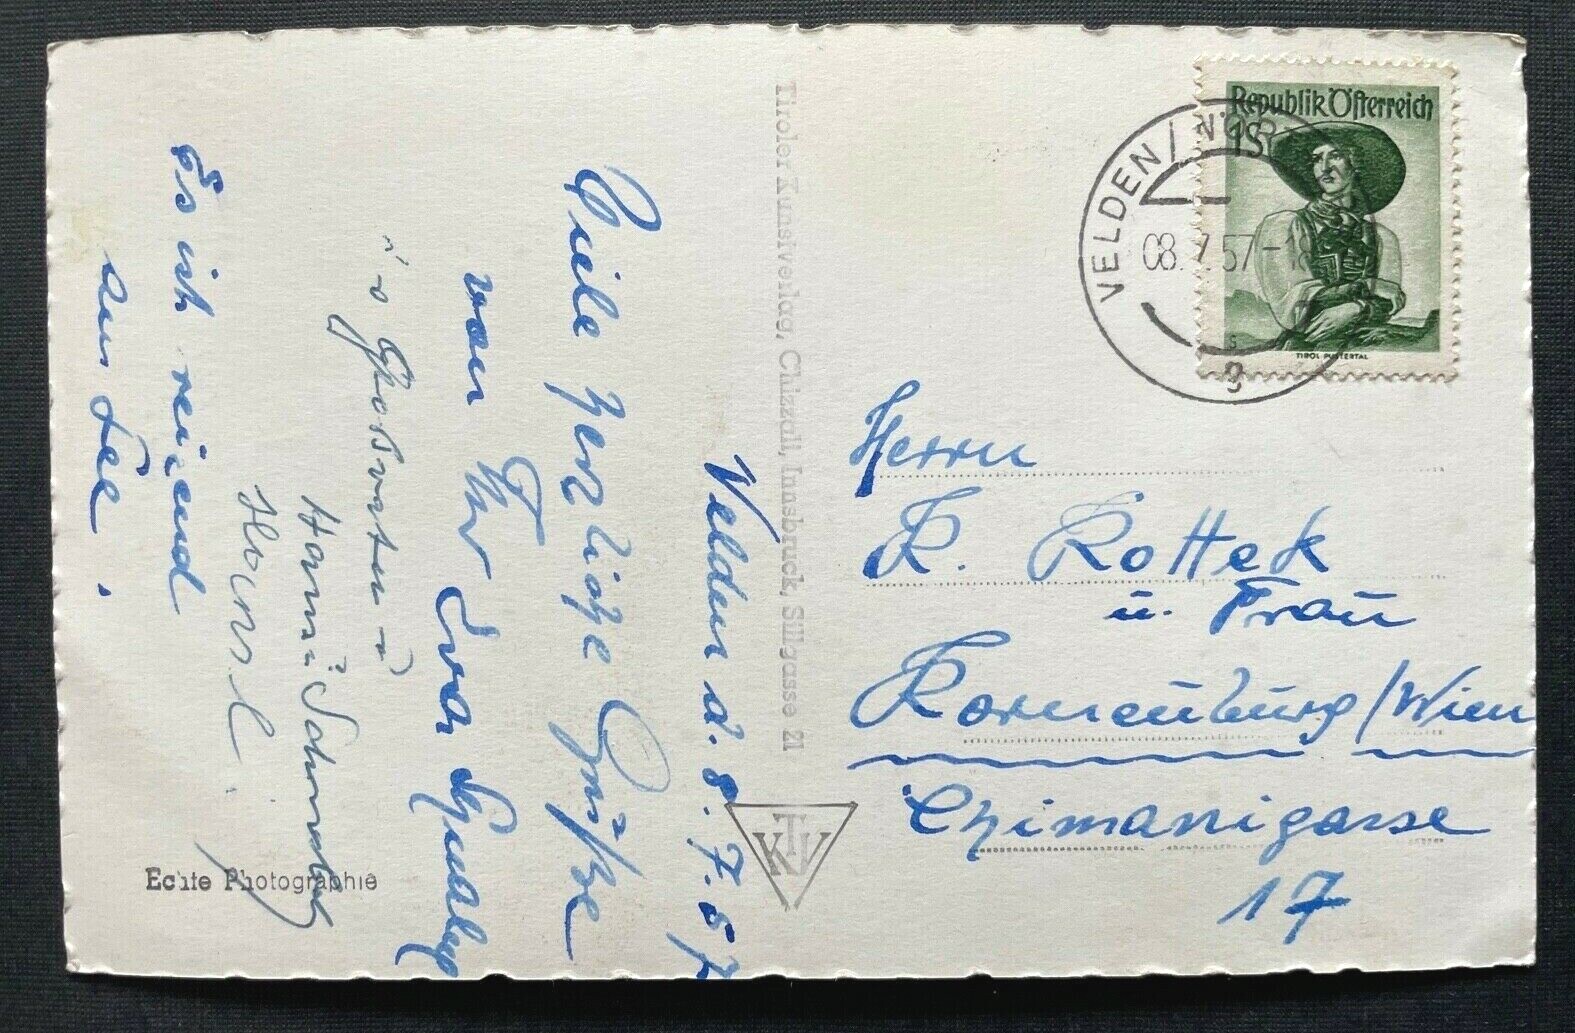 Velden d. 8.7.57
Viele herzliche Grüße
von Ihr Eva
Hansl
Es ist reizend
am See.
Echte Photographie
Tiroler Kunstverlag, Chizzali, Innsbruck, Sillgasse 21
KTV
VELDEN
08. 7. 57-18
g
Republik Österreich
1S
TIROL PUSTERTAL
Herrn
R. Rottek
u. Frau
Korneuburg/Wien
Chimanigasse
17